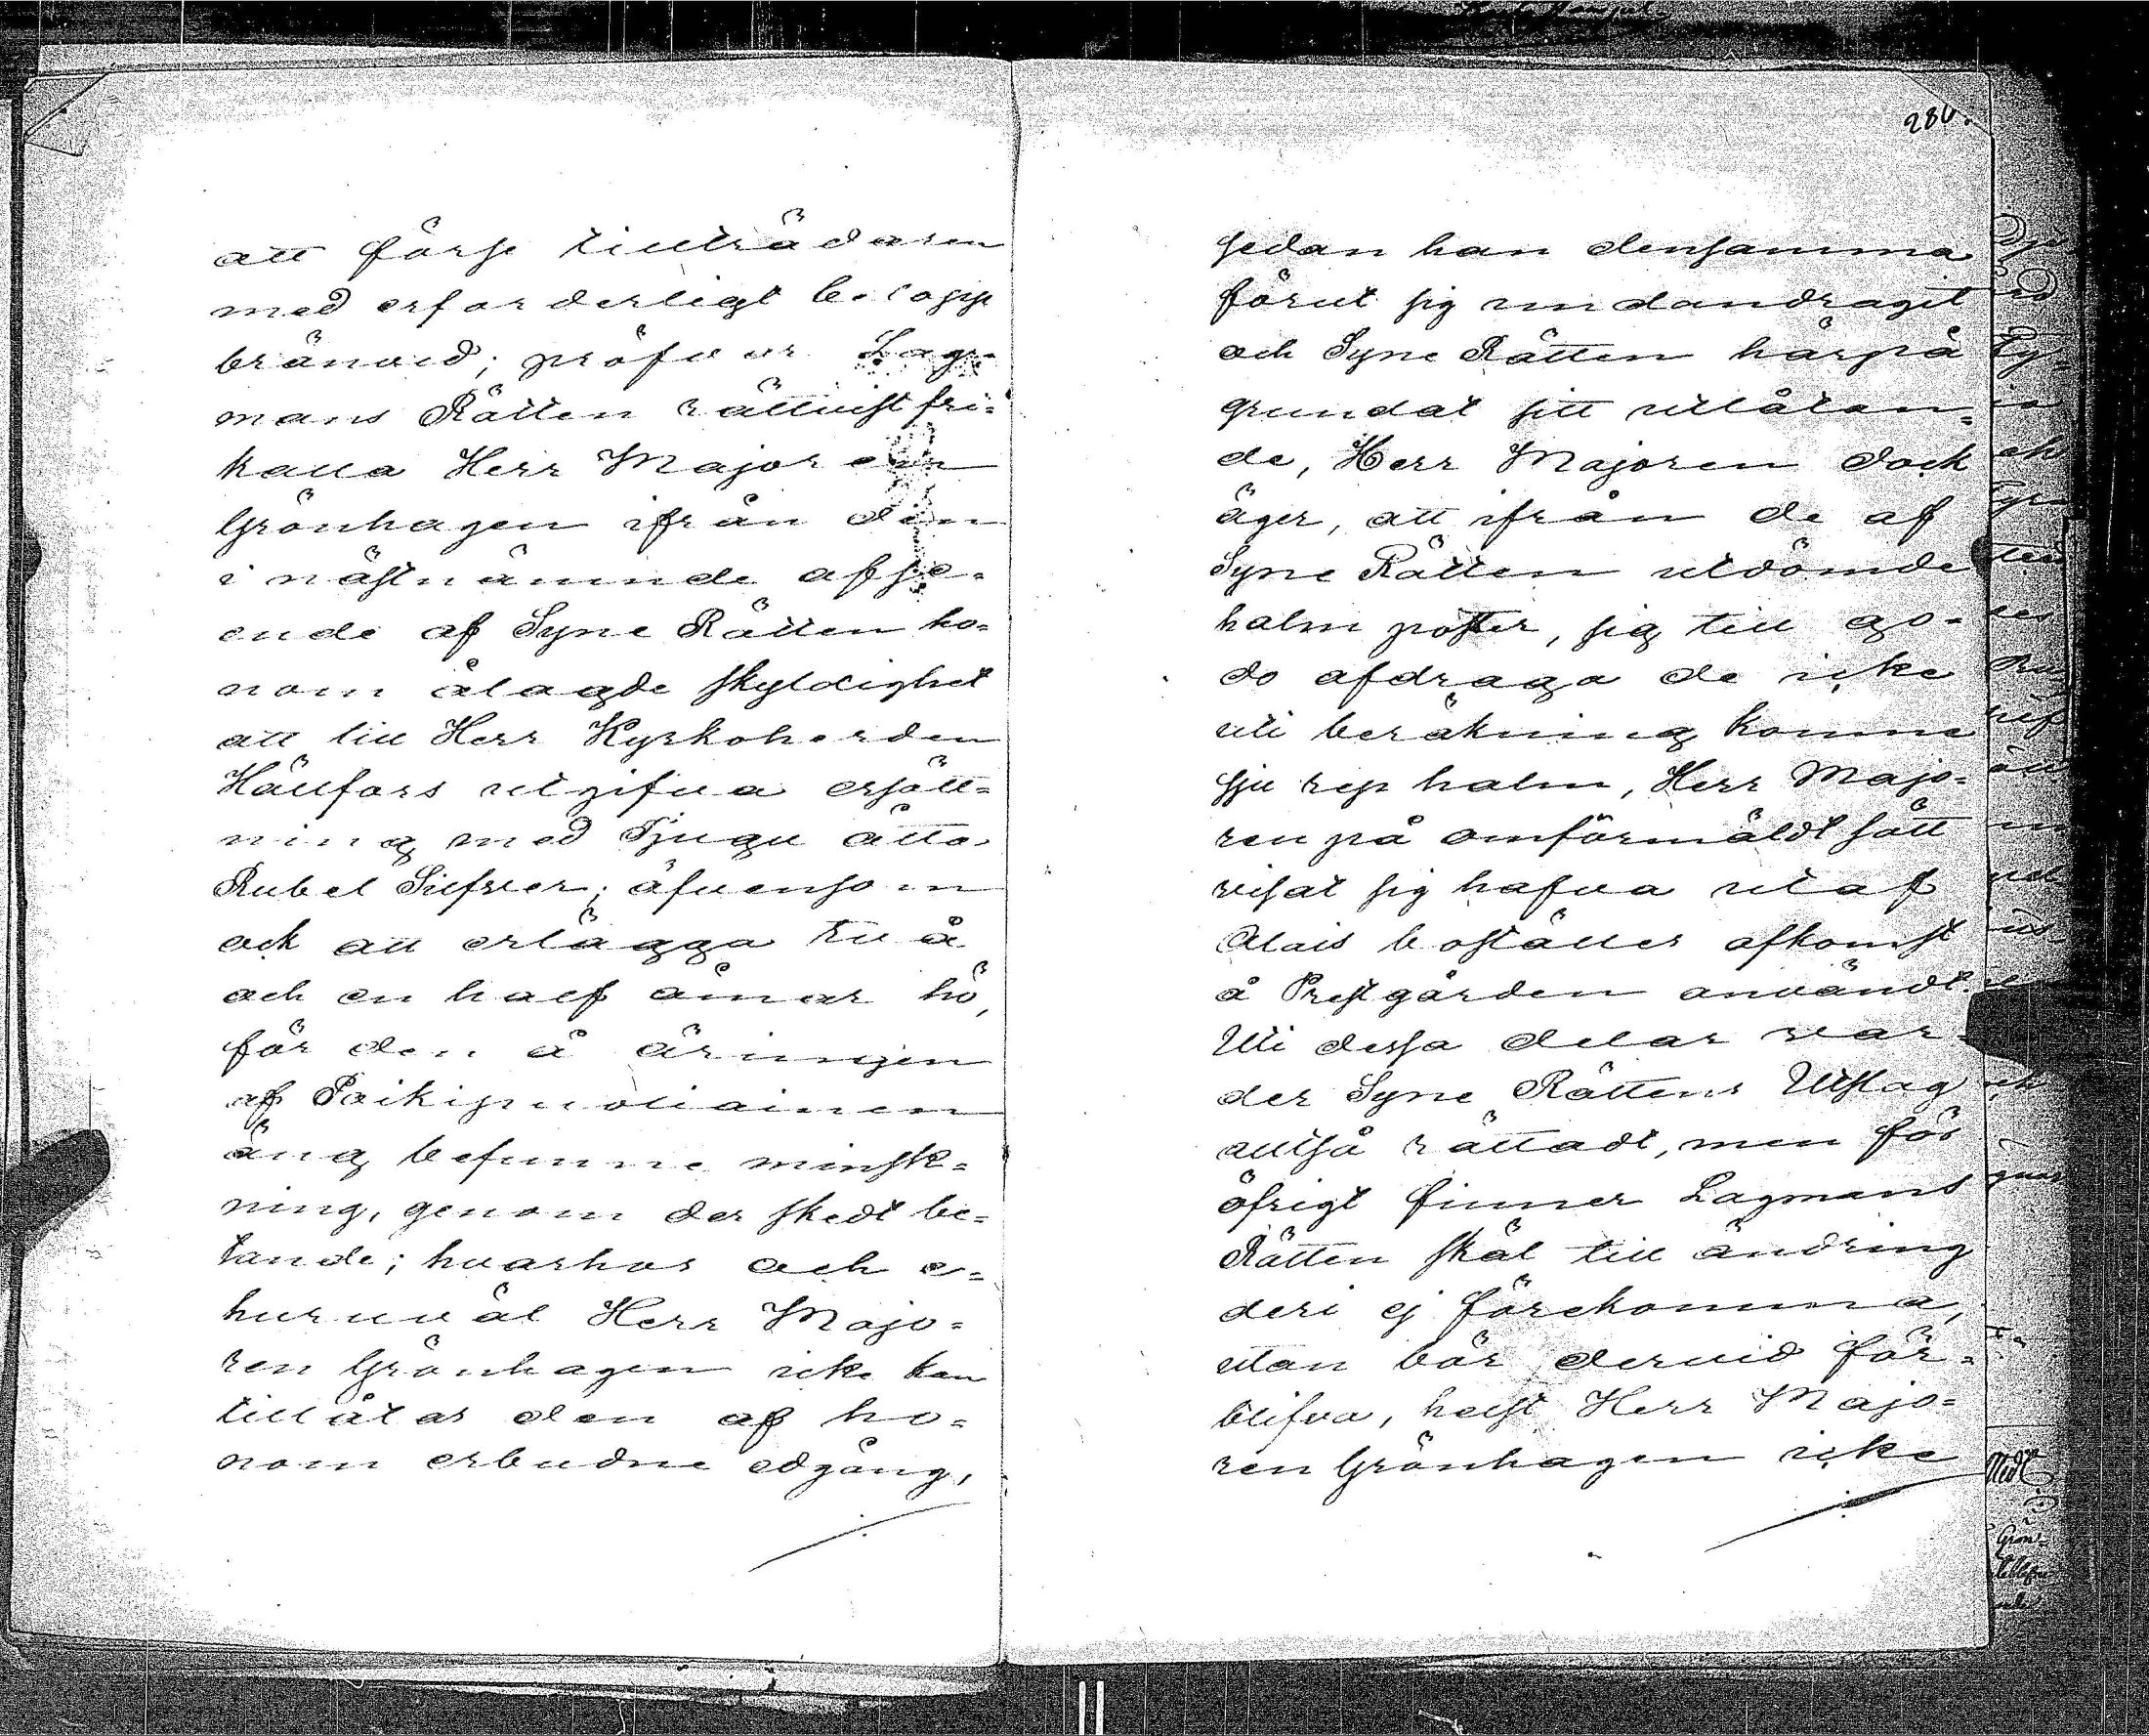 att förse tillträdaren
med erforderligt
bränved; pröfvar Lag-
mans Rätten rättvist fri-
kalla Herr Majoren
Grönhagen ifrån den
i nästnämnde afse-
ende af Syne Rätten ho-
nom ålagde skyldighet
att till Herr Kyrkoherden
Hällfors utgifva ersätt-
ning med Tjugu åtta
Rubel Silfver; äfvensom
ock att erlägga tu å
och en half åmar hö,
för den å äringen
af Paikipuoliainen
äng befunne minsk-
ning, genom der skedt be-
tande; hvarhos och e-
huruväl Herr Majo-
ren Grönhagen icke kan
tillåtas den af ho-
nom erbudne edgång,
286.
sedan han densamma
förut sig undandragit
och Syne Rätten härpå
grundat sitt utlåtan-
de, Herr Majoren dock
äger, att ifrån de af
Syne Rätten utdömde
halm poster, sig till go-
do afdraga de icke
uti beräkning komne
sju rep halm, Herr Majo-
ren på omförmäldt sätt
visat sig hafva utaf
Alais boställes afkomst
å Prestgården användt.
Uti dessa delar var-
der Syne Rättens Utslag
alltså rättadt, men för
öfrigt finner Lagmans
Rätten skäl till ändring
deri ej förekomma,
utan bör dervid för-
blifva, helst Herr Majo-
ren Grönhagen icke